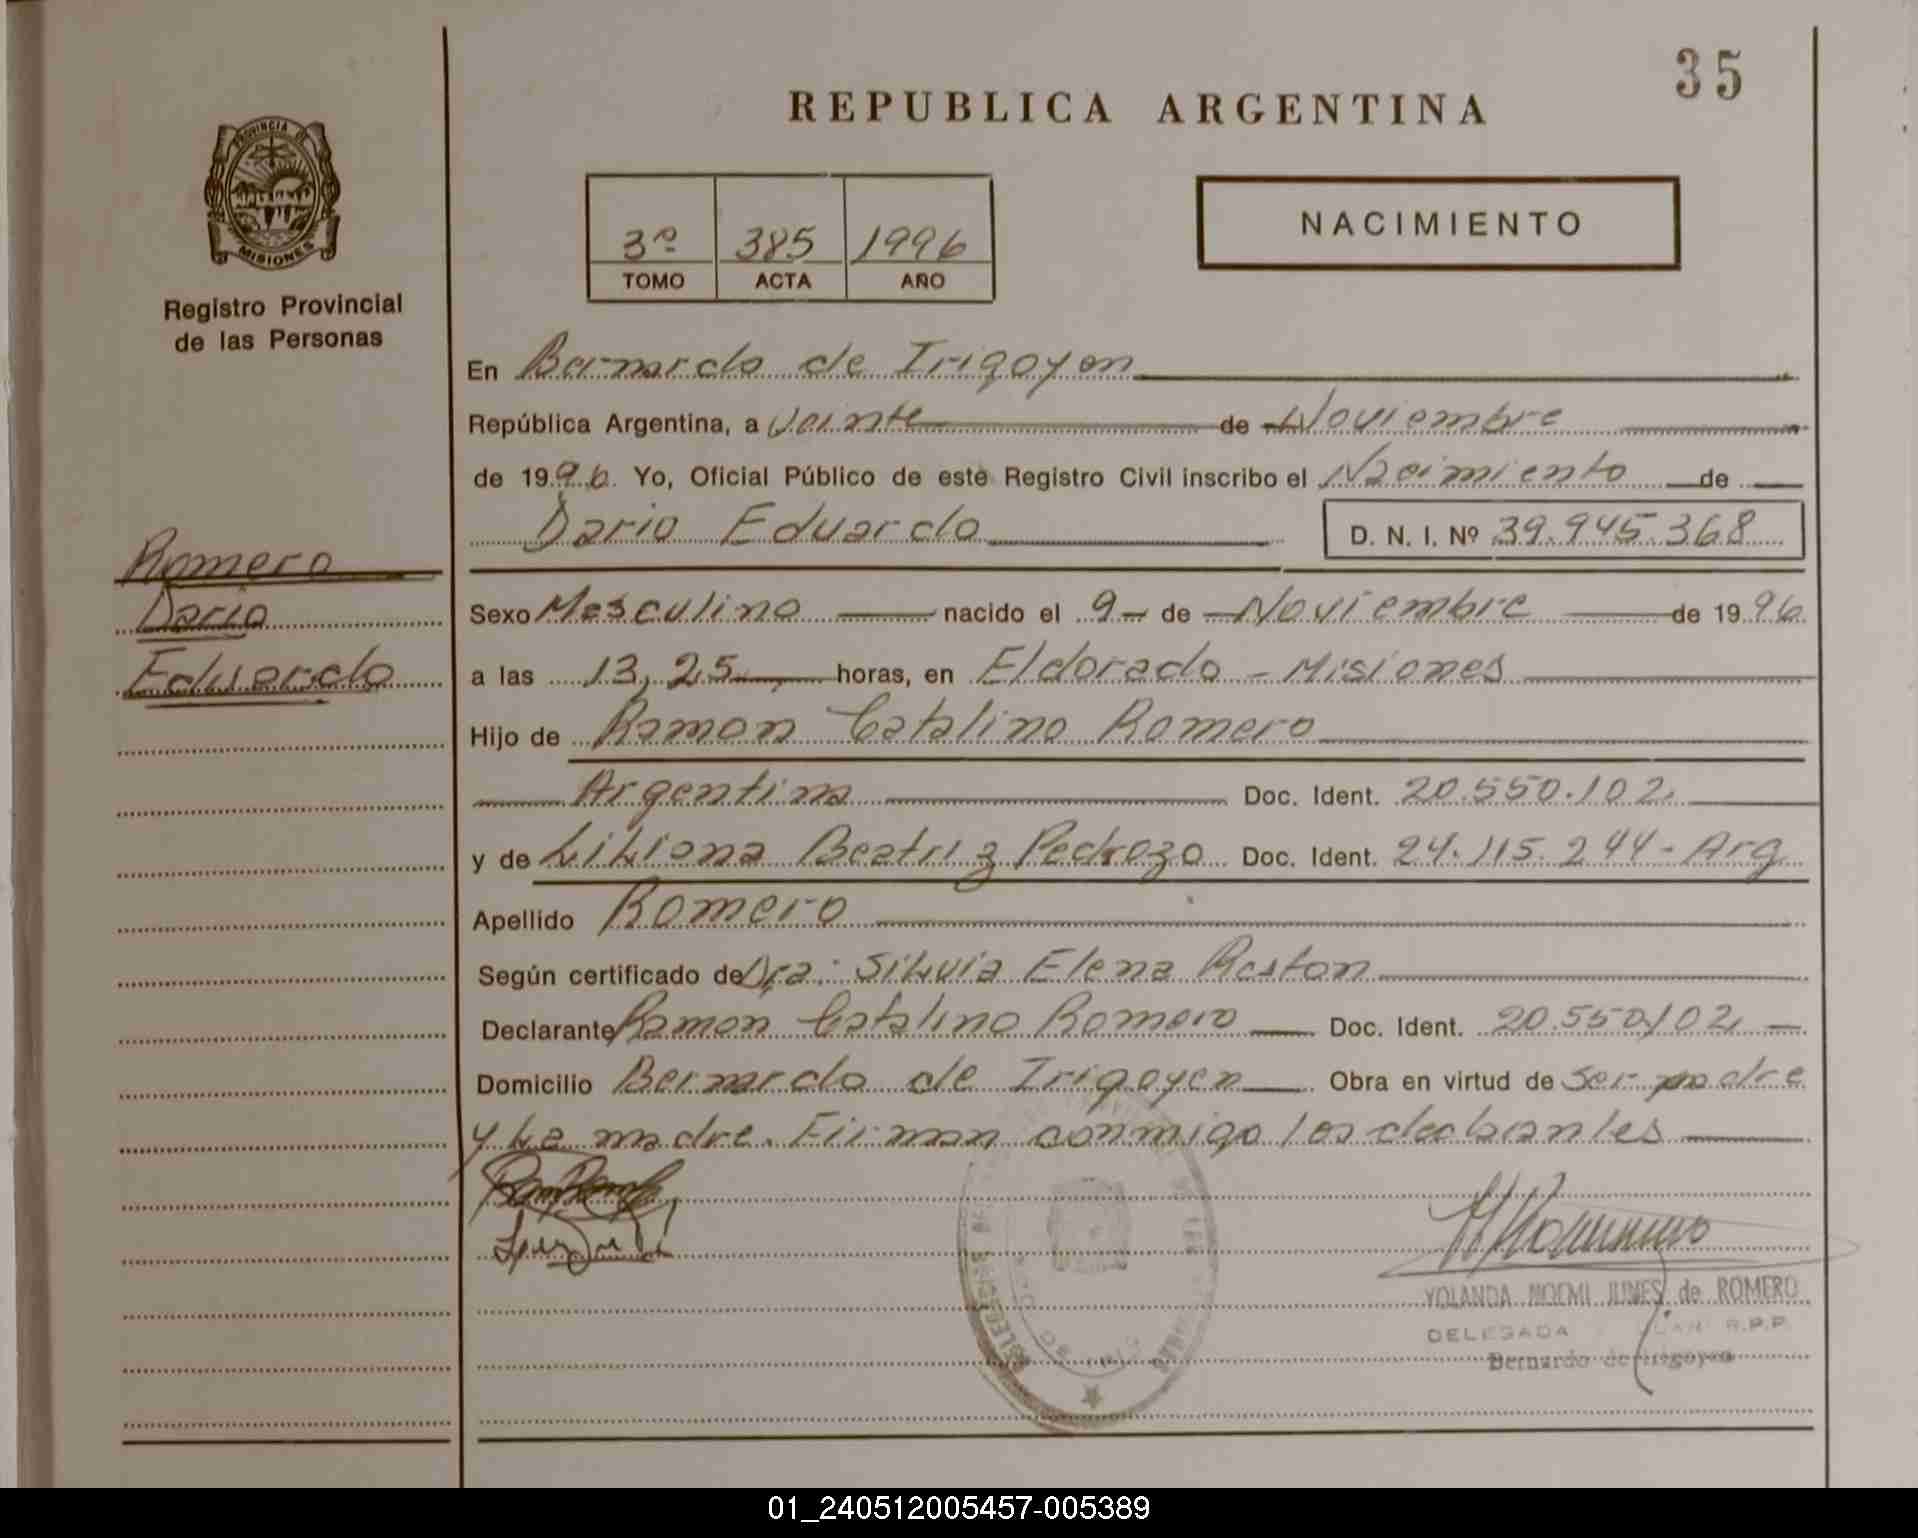 35
REPUBLICA ARGENTINA
PROVINCIA DE
MISIONES
Registro Provincial
de las Personas
NACIMIENTO
3º 385 1996
TOMO ACTA AÑO
En Bernardo de Irigoyen
República Argentina, a veinte de Noviembre
de 1996. Yo, Oficial Público de este Registro Civil inscribo el Nacimiento de
Dario Eduardo D. N. I. Nº 39.945.368
Romero
Dario
Eduardo
Sexo Masculino nacido el 9 de Noviembre de 1996
a las 13,25 horas, en Eldorado - Misiones
Hijo de Ramon Catalino Romero
Argentina Doc. Ident. 20.550.102
y de Liliana Beatriz Pedrozo Doc. Ident. 24.115.244 - Arg
Apellido Romero
Según certificado de Dra: Silvia Elena Reston
Declarante Ramon Catalino Romero Doc. Ident. 20.550.102
Domicilio Bernardo de Irigoyen Obra en virtud de ser padre
y la madre. Firman conmigo los declarantes
YOLANDA NOEMI JUNES de ROMERO
DELEGADA R.P.P.
Bernardo de Irigoyen
01_240512005457-005389